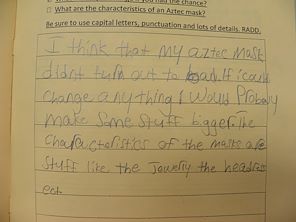 you had the chance?
□ What are the characteristics of an Aztec mask?
Be sure to use capital letters, punctuation and lots of details. RADD.
I think that my aztec mask
didnt turn out to bad. If i could
change anything I would Probaly
make some stuff bigger. The
characteristics of the masks are
stuff like the Jowelry the headress
ect.